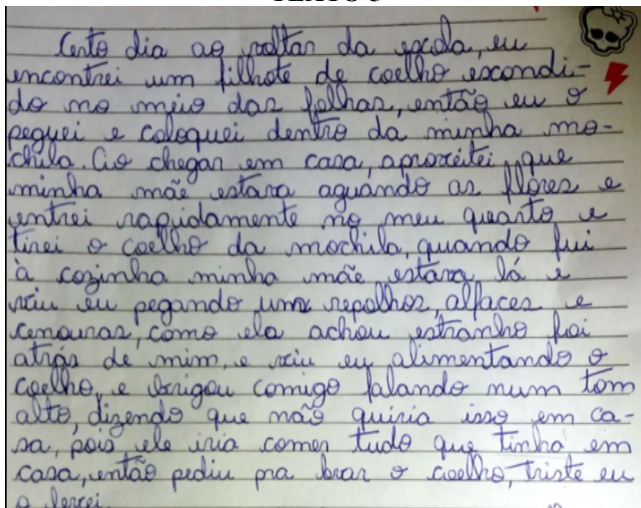 Certo dia ao voltar da escola, eu
encontrei um filhote de coelho escondi-
do no meio das folhas, então eu o
peguei e coloquei dentro da minha mo-
chila. Ao chegar em casa, aproveitei que
minha mãe estava aguando as flores e
entrei rapidamente no meu quarto e
tirei o coelho da mochila, quando fui
à cozinha minha mãe estava lá e
viu eu pegando uns repolhos, alfaces e
cenouras, como ela achou estranho foi
atrás de mim, e viu eu alimentando o
coelho, e brigou comigo falando num tom
alto, dizendo que não quiria isso em ca-
sa, pois ele iria comer tudo que tinha em
casa, então pediu pra levar o coelho, triste eu
o